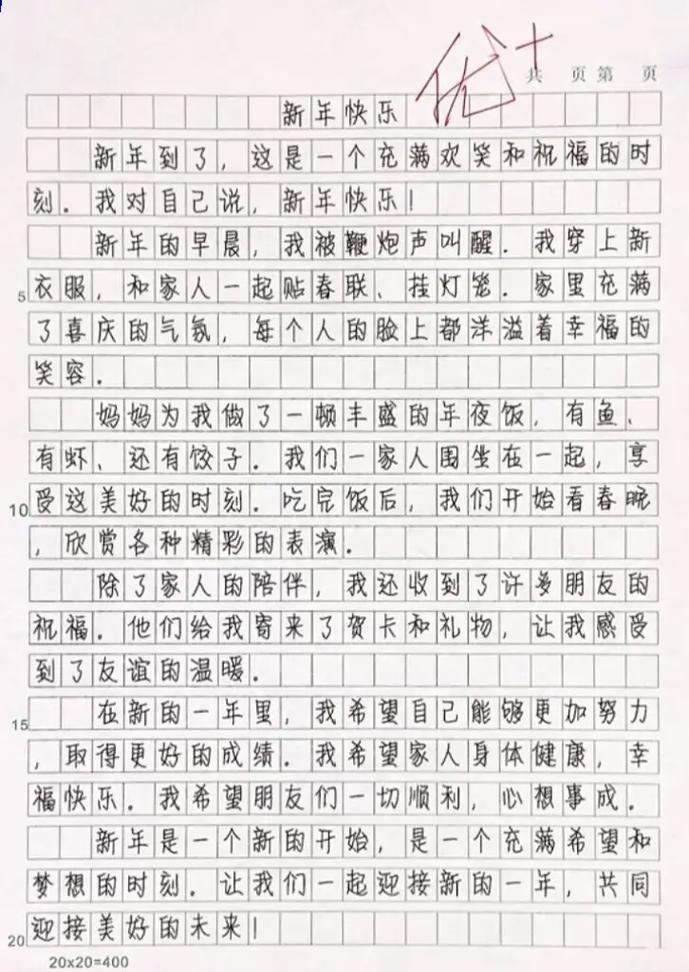 优+
共 页 第 页
新年快乐
新年到了，这是一个充满欢笑和祝福的时
刻．我对自己说，新年快乐！
新年的早晨，我被鞭炮声叫醒．我穿上新
5 衣服，和家人一起贴春联、挂灯笼．家里充满
了喜庆的气氛，每个人的脸上都洋溢着幸福的
笑容．
妈妈为我做了一顿丰盛的年夜饭，有鱼、
有虾、还有饺子．我们一家人围坐在一起，享
10 受这美好的时刻．吃完饭后，我们开始看春晚
，欣赏各种精彩的表演．
除了家人的陪伴，我还收到了许多朋友的
祝福．他们给我寄来了贺卡和礼物，让我感受
到了友谊的温暖．
15 在新的一年里，我希望自己能够更加努力
，取得更好的成绩．我希望家人身体健康，幸
福快乐．我希望朋友们一切顺利，心想事成．
新年是一个新的开始，是一个充满希望和
梦想的时刻．让我们一起迎接新的一年，共同
20 迎接美好的未来！
20x20=400